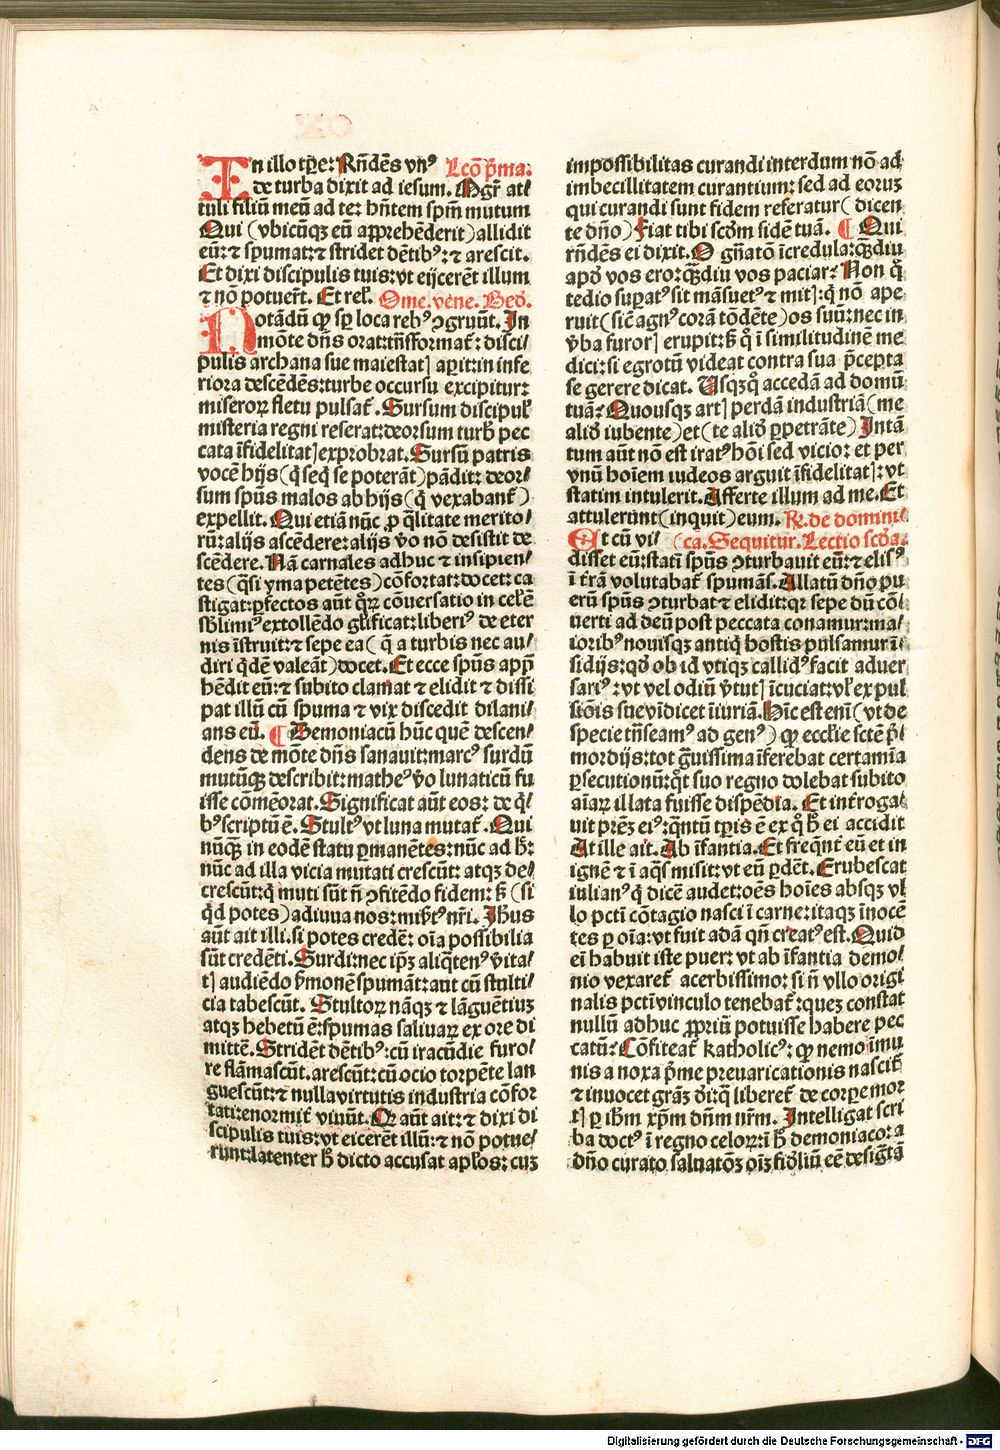 In illo tp̄re: Rn̄dēs vnꝰ Lcō p̄ma.
de turba dixit ad iesum. Mgr̄ at⸗
tuli filiū meū ad te: hn̄tem spm̄ mutum
Qui (vbicūqꝫ eū apprehēderit) allidit
eū: ⁊ spumat: ⁊ stridet dētibꝰ: ⁊ arescit.
Et dixi discipulis tuis: vt eijcerēt illum
⁊ nō potuerūt. Et rel̄. Ome. vēne. Bed̄.
Notādū ꝙ sp̄ loca rebꝰ ↄgruūt. In
mōte dn̄s orat: trn̄sformat᷑: disci⸗
pulis archana sue maiestatꝭ aꝑit: in infe
riora descēdēs: turbe occursu excipitur:
miseroꝝ fletu pulsat᷑. Sursum discipul̓
misteria regni reserat: deorsum turb̓ pec
cata īfidelitatꝭ exprobrat. Sursū patris
vocē hijs (q̓ seq̓ se poterāt) pādit: deor⸗
sum spūs malos ab hijs (q̓ vexabant᷑)
expellit. Qui etiā nūc ꝓ q̄litate merito⸗
rū: alijs ascēdere: alijs v̓o nō desistit de
scēdere. Nā carnales adhuc ⁊ insipien⸗
tes (q̄si yma petētes) cōfortat: docet: ca
stigat: ꝑfectos aūt qͦꝝ cōuersatio in cel̓ ē
sb̓limiꝰ extollēdo gl̓ificat: liberiꝰ de eter
nis īstruit: ⁊ sepe ea (q̄ a turbis nec au⸗
diri q̓dē valeāt) docet. Et ecce spūs app̄
hēdit eū: ⁊ subito clamat ⁊ elidit ⁊ dissi
pat illū cū spuma ⁊ vix discedit dilani⸗
ans eū. ¶ Demoniacū hūc quē descen⸗
dens de mōte dn̄s sanauit: marcꝰ surdū
mutūqꝫ describit: matheꝰ v̓o lunaticū fu
isse cōmēorat. Significat aūt eos: de q̓⸗
bꝰ scriptū ē. Stultꝰ vt luna mutat᷑. Qui
nūqꝫ in eodē statu ꝑmanētes: nūc ad h̓:
nūc ad illa vicia mutati crescūt: atqꝫ de⸗
crescūt: q̓ muti sūt n̄ ↄfitēdo fidem: ß̓ (si
q̓d potes) adiuua nos: misertꝰ nr̄i. Ih̄us
aūt ait illi. si potes credē: oīa possibilia
sūt credēti. Surdi: nec ip̄z aliq̄tenꝰ v̓ita⸗
tꝭ audiēdo s̓monē spumāt: aūt cū stulti⸗
cia tabescūt. Stultoꝝ nāqꝫ ⁊ lāguētiuꝫ
atqꝫ hebetū ē: spumas saliuaꝝ ex ore di
mittē. Stridēt dētibꝰ: cū iracūdie furo⸗
re flāmascūt. arescūt: cū ocio torpēte lan
guescūt: ⁊ nulla virtutis industria cōfor
tati: enormit᷑ viuūt. Qꝫ aūt ait: ⁊ dixi di
scipulis tuis: vt eicerēt illū: ⁊ nō potue⸗
runt: latenter h̓ dicto accusat apl̓os: cuꝫ
impossibilitas curandi interdum nō ad
imbecillitatem curantium: sed ad eoruꝫ
qui curandi sunt fidem referatur (dicen
te dn̄o) Fiat tibi scd̄m fidē tuā. ¶ Qui
rn̄dēs ei dixit. O gn̄atō īcredula: qͣ̄diu
apd̓ vos ero: qͣ̄diu vos paciar? Non qͦ
tedio suꝑatꝰ sit māsuetꝰ ⁊ mitꝭ: q̓ nō ape
ruit (sic̄ agnꝰ corā tōdēte) os suū: nec in
v̓ba furorꝭ erupit: ß̓ qͦ ī similitudinē me
dici: si egrotū videat contra sua p̄cepta
se gerere dicat. Usqꝫqͦ accedā ad domū
tuā? Quousqꝫ artꝭ perdā industriā (me
aliд̓ iubente) et (te alid̓ ꝑpetrāte) Intā
tum aūt nō est iratꝰ hōi sed vicio: et per
vnū hoīem iudeos arguit īfidelitatꝭ: vt
statim intulerit. Afferte illum ad me. Et
attulerunt (inquit) eum. R̷. de domini⸗
Et cū vi⸗ (ca. Sequitur. Lectio scd̓a.
disset eū: statī spūs ↄturbauit eū: ⁊ elisꝰ
ī t̄rā volutabat᷑ spumās. Allatū dn̄o pu
erū spūs ↄturbat ⁊ elidit: qꝛ sepe dū cō⸗
uerti ad deū post peccata conamur: ma⸗
ioribꝰ nouisqꝫ antiq̓ hostis pulsamur ī⸗
sidijs: qd̓ ob id vtiqꝫ callidꝰ facit aduer
sariꝰ: vt vel odiū v̓tutꝭ īcuciat: vl̓ expul
siōis sue vīdicet īiuriā. Hīc est enī (vt de
specie trn̄seamꝰ ad genꝰ) ꝙ ecclie sctē p̓i
mordijs: tot g̓uissima īferebat certamīa
ꝑsecutionū: qͦt suo regno dolebat subito
aīaꝝ illata fuisse dispēdia. Et int̓roga⸗
uit prēꝫ eiꝰ: qn̄tū tꝑis ē ex qͦ h̓ ei accidit
At ille ait. Ab īfantia. Et freq̄nt̓ eū et in
ignē ⁊ ī aq̄s misit: vt eū ꝑdēt. Erubescat
iulianꝰ q̓ dicē audet: oēs hoīes absqꝫ vl
lo pctī cōtagio nasci ī carne: itaqꝫ īnocē
tes ꝑ oīa: vt fuit adā qn̄ creatꝰ est. Quid
eī habuit iste puer: vt ab īfantia demo⸗
nio vexaret᷑ acerbissimo: si n̄ vllo origi
nalis pctī vinculo tenebat᷑: quez constat
nullū adhuc ꝓpriū potuisse habere pec
catū: Cōfiteat᷑ katholicꝰ: ꝙ nemo īmu
nis a noxa p̄me preuaricationis nascit᷑
⁊ inuocet grāꝫ dī: q̓ liberet᷑ de corꝑe mor
tꝭ ꝑ ih̄m xp̄m dn̄m nr̄m. Intelligat scri
ba doctꝰ ī regno celoꝝ: ī h̓ demoniaco: a
dn̄o curato saluatōꝫ oīꝫ fid̓liū eē desig̓tā
Digitalisierung gefördert durch die Deutsche Forschungsgemeinschaft - DFG